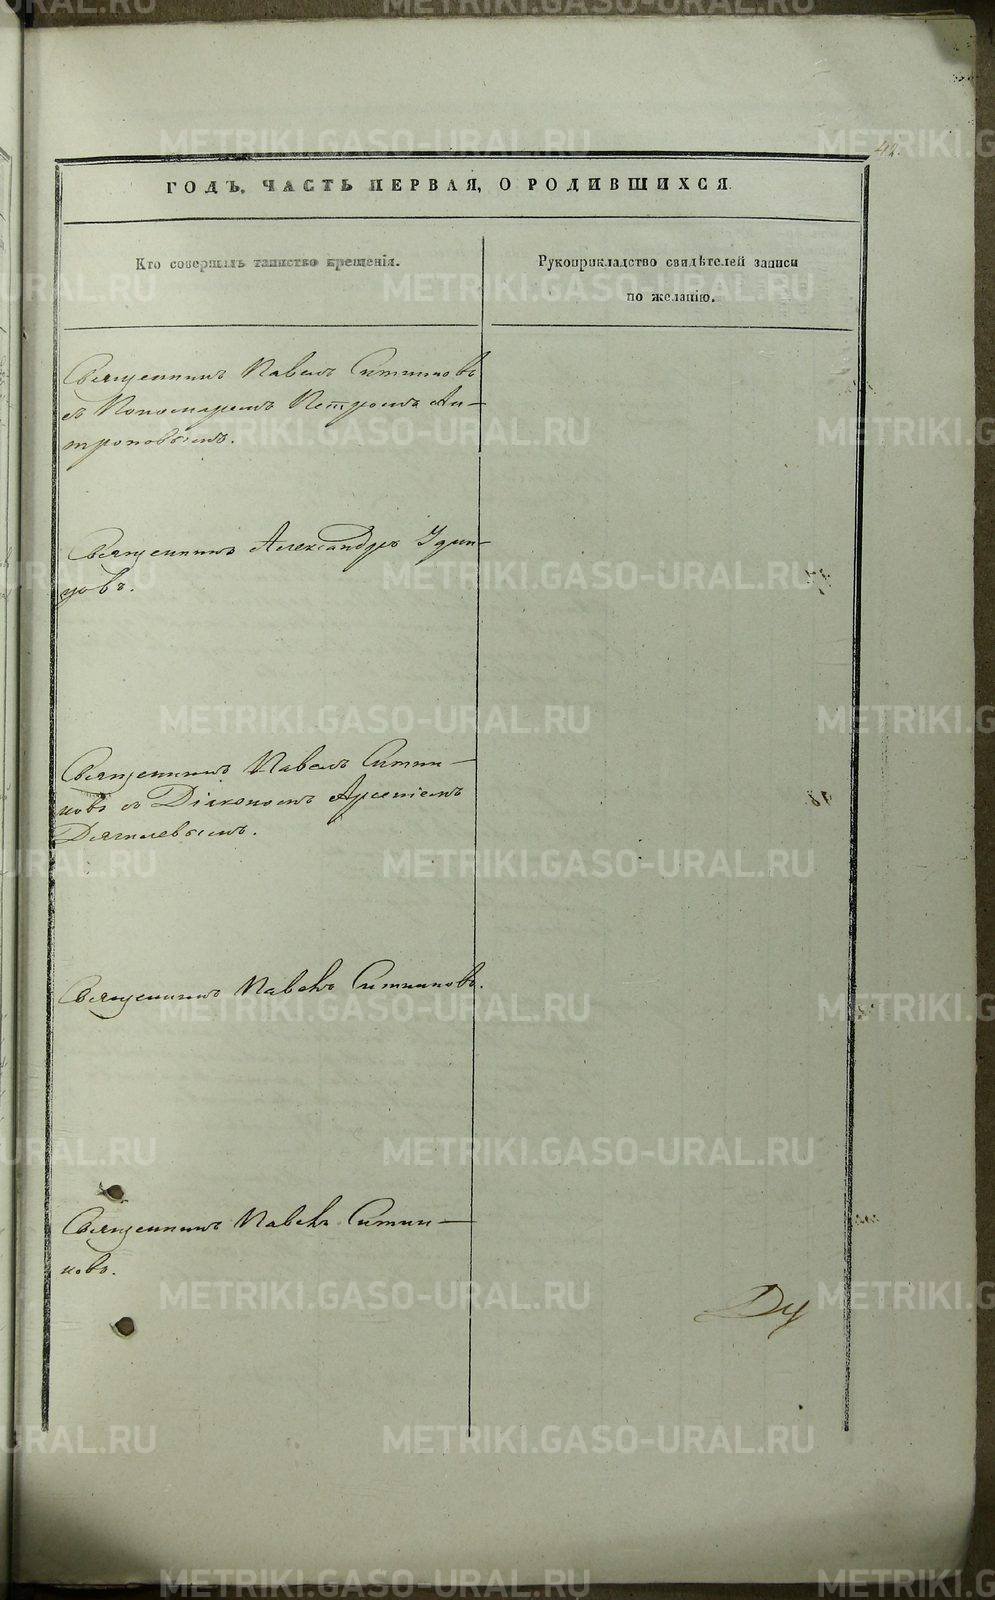 42.
ГОДЪ, ЧАСТЬ ПЕРВАЯ, О РОДИВШИХСЯ.
Кто совершалъ таинство крещенія.
Рукоприкладство свидѣтелей записи
по желанію.
Священникъ Павелъ Ситниковъ
съ Пономаремъ Петромъ Ан-
троповымъ.
Священникъ Александръ Удин-
цовъ.
Священникъ Павелъ Ситни-
ковъ съ Діакономъ Арсеніемъ
Дягилевымъ.
Священникъ Павелъ Ситниковъ.
Священникъ Павелъ Ситни-
ковъ.
METRIKI.GASO-URAL.RU